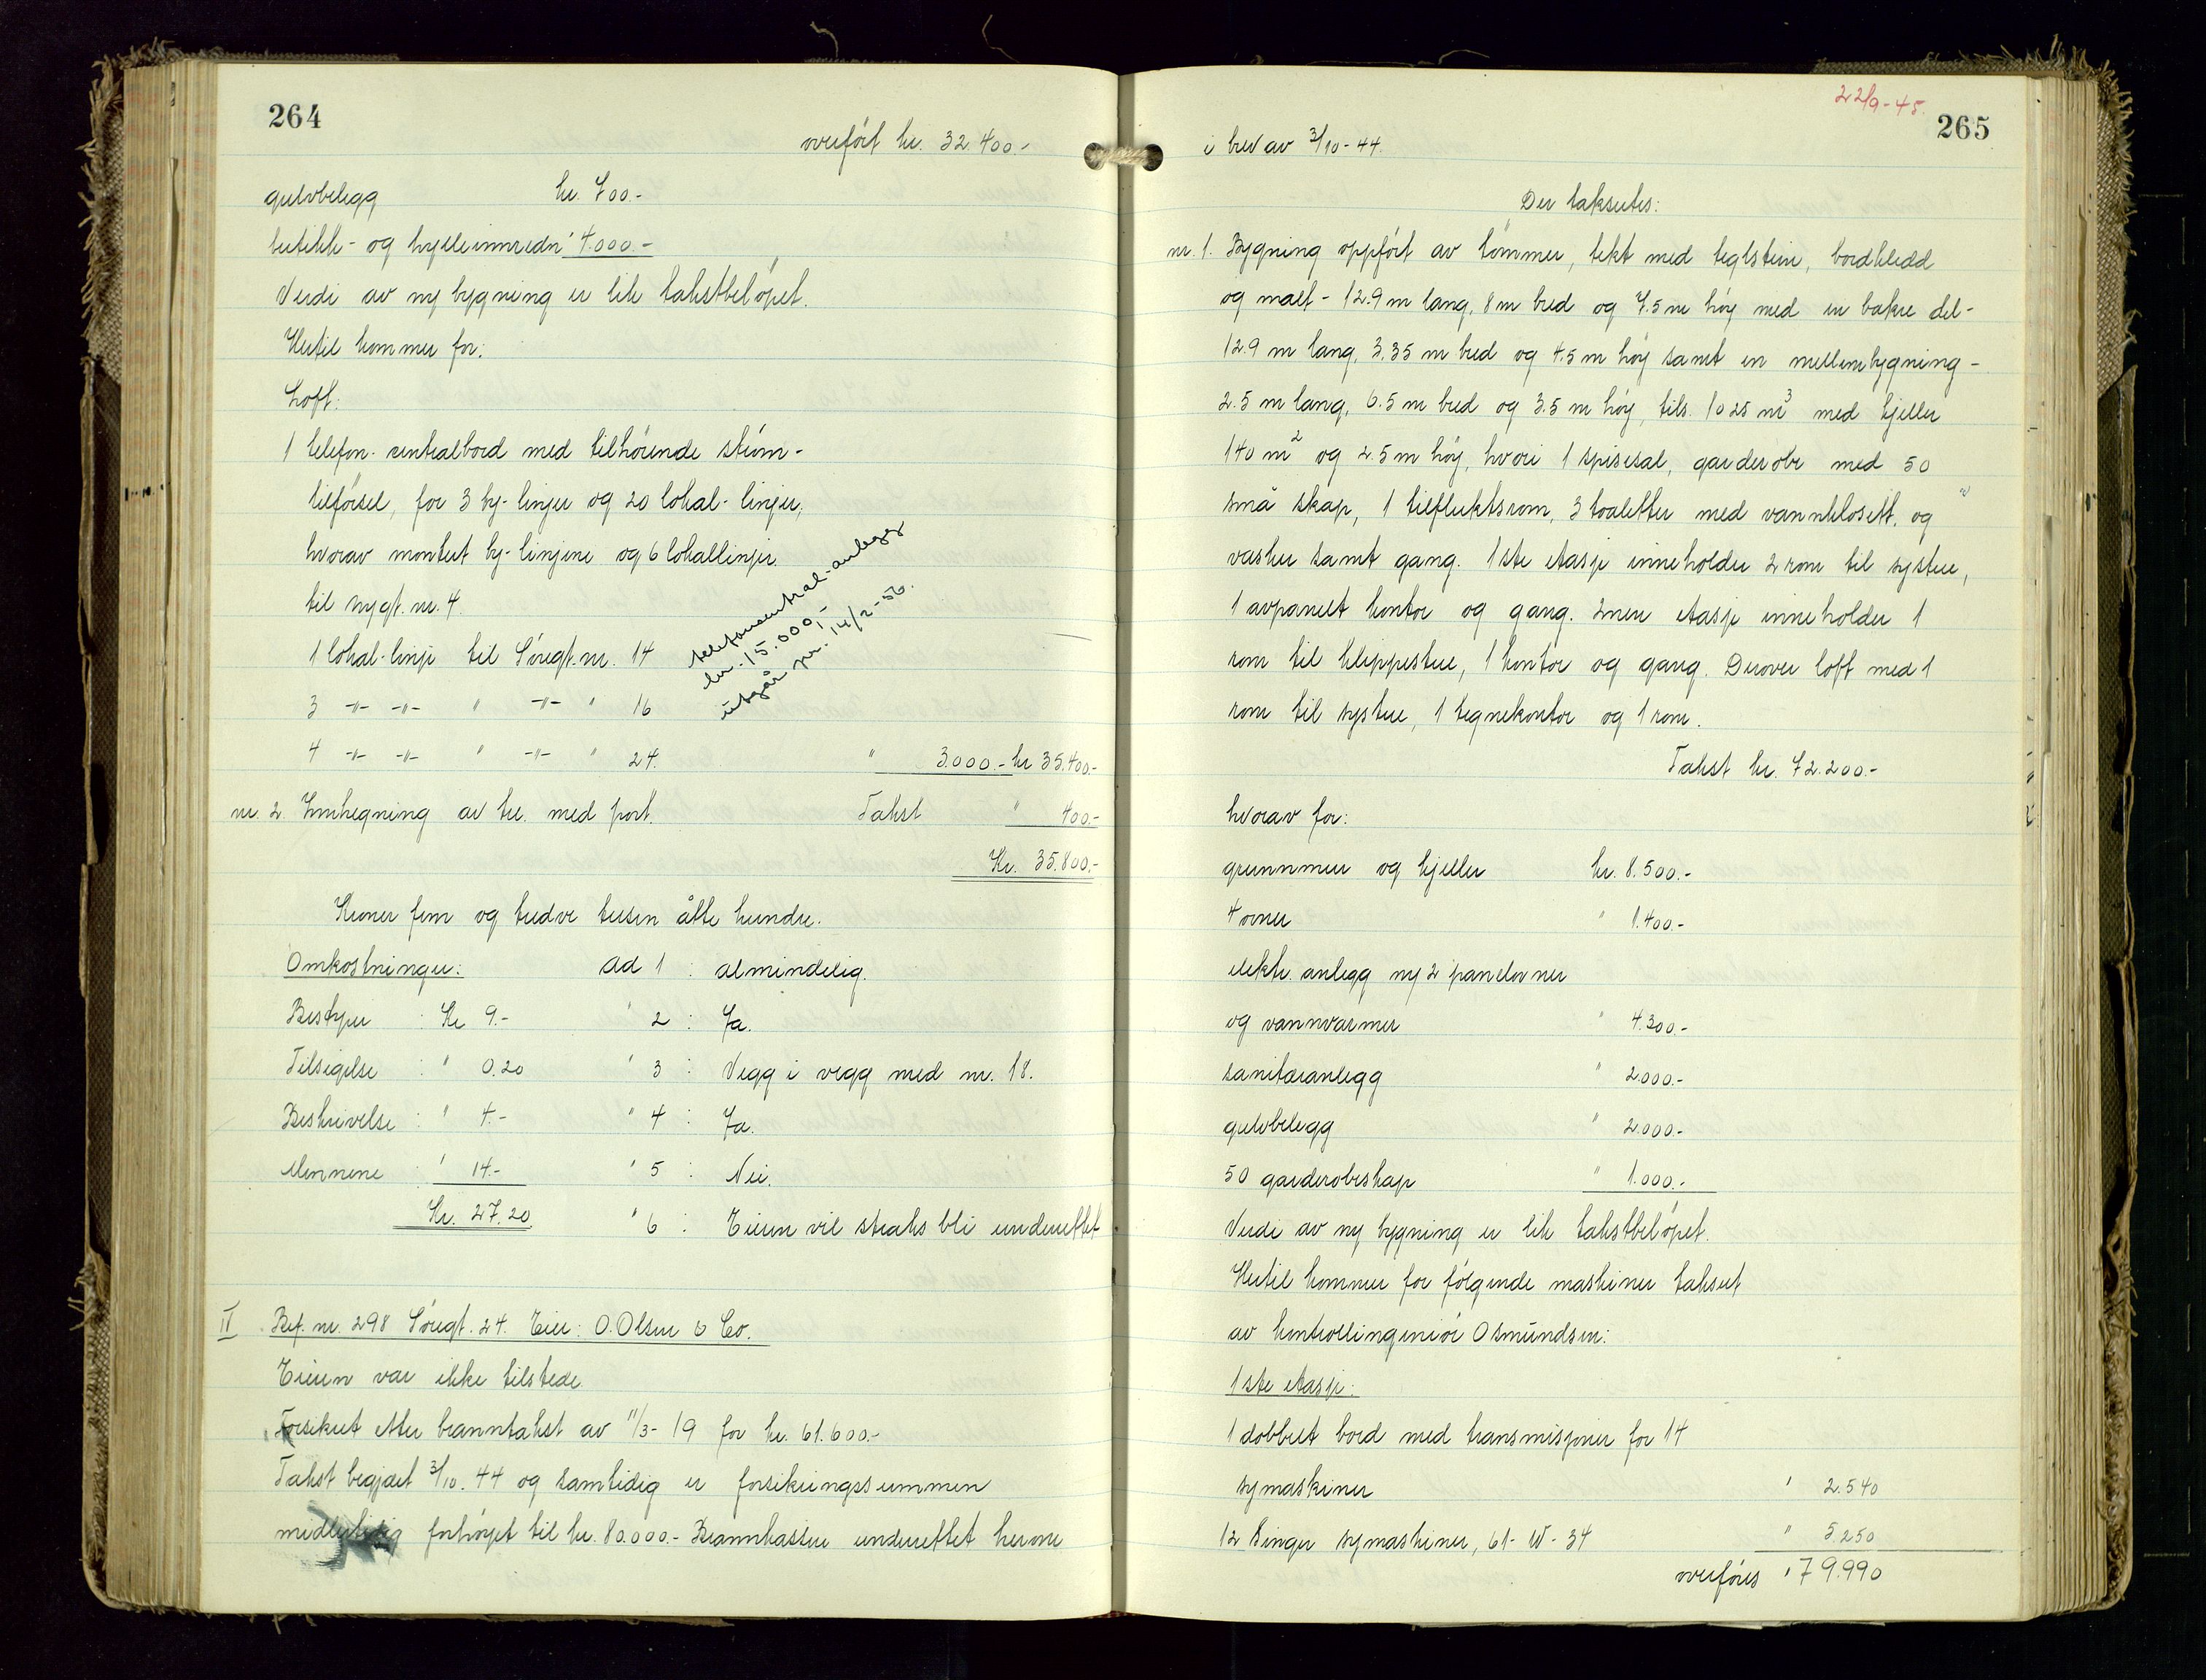 264
overført kr. 32.400.-
gulvbelegg kr. 700.-
butikk- og hylleinnredn " 4.000.-
Verdi av ny bygning er lik takstbeløpet.
Hertil kommer for:
Loft:
1 telefon-sentralbord med tilhørende strøm-
tilførsel, for 3 by-linjer og 20 lokal-linjer,
hvorav montert by-linjene og 6 lokallinjer
til Nygt. nr. 4.
1 lokal-linje til Søregt. nr. 14
3 -"- -"- " -"- " 16
4 -"- -"- " -"- " 24. " 3.000.- kr 35.400.-
telefonsentral-anlegg
kr. 15.000,-
utgår pr. 14/2-56.
nr. 2 Innhegning av tre med port. Takst " 400.-
Kr. 35.800.-
Kroner fem og tredve tusen åtte hundre.
Omkostninger: Ad 1 : almindelig.
Bestyrer : Kr 9.- " 2 : Ja.
Tilsigelse : " 0.20 " 3 : Vegg i vegg med nr. 18.
Beskrivelse : " 4.- " 4 : Ja.
Mennene : " 14.- " 5 : Nei.
Kr. 27.20 " 6 : Eieren vil straks bli underrettet
IV Brf. nr. 298 Søregt. 24. Eier: O. Olsen & Co.
Eieren var ikke tilstede
Forsikret etter branntakst av 11/3-19 for kr. 61.600.-
Takst begjært 3/10.44 og samtidig er forsikringssummen
midlertidig forhøyet til kr. 80.000.- Brannkassen underrettet herom
22/9-45.
265
i brev av 3/10-44.
Der taksertes:
nr. 1. Bygning oppført av tømmer, tekt med teglstein, bordkledd
og malt - 12.9 m lang, 8 m bred og 7.5 m høy med en bakre del -
12.9 m lang, 3.35 m bred og 4.5 m høy samt en mellembygning -
2.5 m lang, 6.5 m bred og 3.5 m høy, tils. 1025 m³ med kjeller
140 m² og 2.5 m høy, hvori 1 spisesal, garderobe med 50
små skap, 1 tilfluktsrom, 3 toaletter med vannklosett, og
vasker samt gang. 1ste etasje inneholder 2 rom til systue,
1 avpanelt kontor og gang. 2nen etasje inneholder 1
rom til klippestue, 1 kontor og gang. Derover loft med 1
rom til systue, 1 tegnekontor og 1 rom.
Takst kr. 72.200.-
hvorav for:
grunnmur og kjeller kr. 8.500.-
4 ovner " 1.400.-
elektr. anlegg ny 2 panelovner
og vannvarmer " 4.300.-
sanitæranlegg " 2.000.-
gulvbelegg " 2.000.-
50 garderobeskap " 1.000.-
Verdi av ny bygning er lik takstbeløpet.
Hertil kommer for følgende maskiner taksert
av kontrollingeniør Osmundsen:
1ste etasje:
1 dobbelt bord med transmisjoner for 14
symaskiner " 2.540
12 Singer symaskiner, 61-W-34 " 5.250
overføres " 79.990